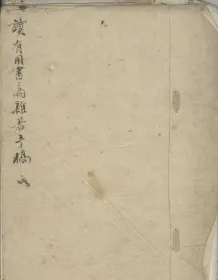 讀有用書齋雜著手稿